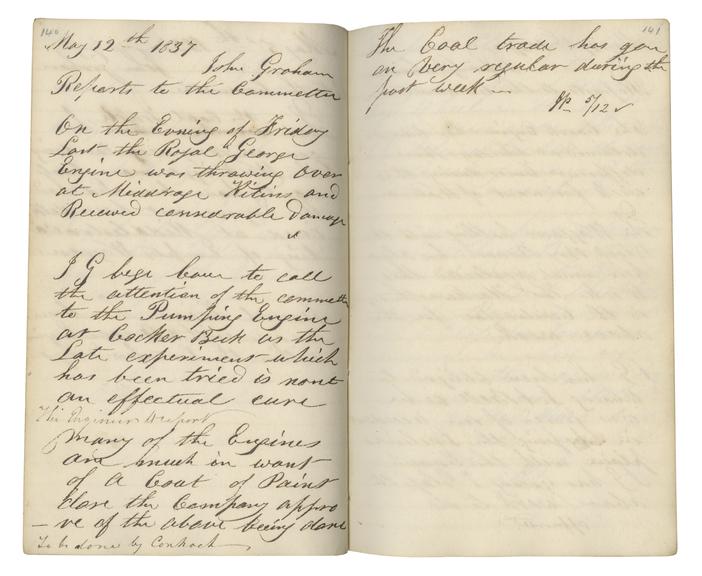 140
May 12th 1837
John Graham
Reports to the Committee
On the Evning of Friday
Last the Royal George
Engine was throwing over
at Middrage Kitins and
Received considrable Damage
J G begs leave to call
the attention of the committe
to the Pumping Engine
at Cocker Beck as the
Late experiment which
has been tried is nont
an effectual cure
The Engineer to report
Many of the Engines
are much in want
of a Coat of Paint
dose the Company appro
-ve of the above being done
To be done by Contract
141
The Coal trade has gon
on very regular during the
past week
5/12